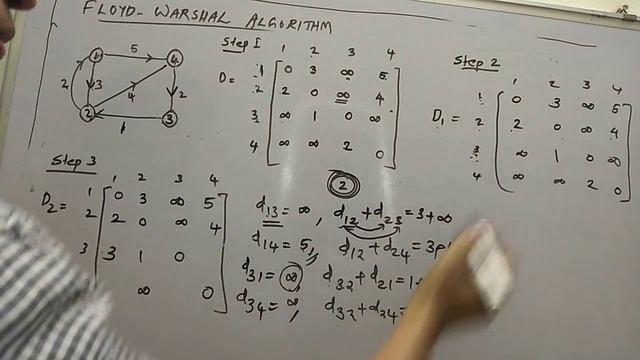 FLOYD-WARSHAL ALGORITHM
1 5 4
2 3 4 2
2 1 3
Step I
1 2 3 4
D = 1 0 3 ∞ 5
2 2 0 ∞ 4
3 ∞ 1 0 ∞
4 ∞ ∞ 2 0
Step 2
1 2 3 4
1 0 3 ∞ 5
D₁ = 2 2 0 ∞ 4
3 ∞ 1 0 ∞
4 ∞ ∞ 2 0
Step 3
1 2 3 4
D₂ = 1 0 3 ∞ 5
2 2 0 ∞ 4
3 3 1 0
∞ 0
2
d₁₃ = ∞, d₁₂ + d₂₃ = 3 + ∞
d₁₄ = 5, d₁₂ + d₂₄ = 3
d₃₁ = ∞, d₃₂ + d₂₁ = 1
d₃₄ = ∞, d₃₂ + d₂₄ =